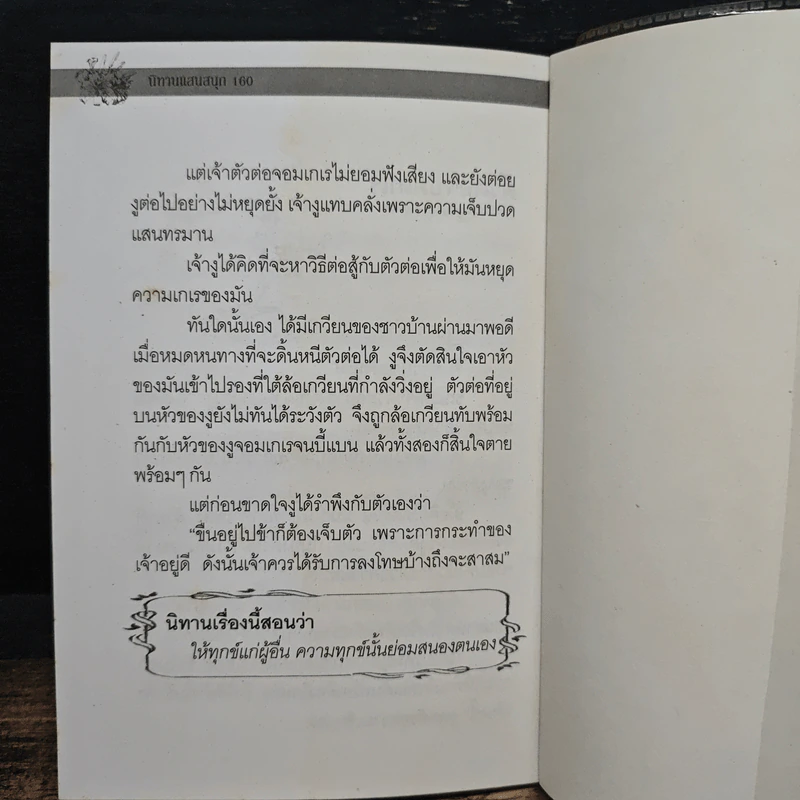 นิทานแสนสนุก 160
แต่เจ้าตัวต่อจอมเกเรไม่ยอมฟังเสียง และยังต่อย
งูต่อไปอย่างไม่หยุดยั้ง เจ้างูแทบคลั่งเพราะความเจ็บปวด
แสนทรมาน
เจ้างูได้คิดที่จะหาวิธีต่อสู้กับตัวต่อเพื่อให้มันหยุด
ความเกเรของมัน
ทันใดนั้นเอง ได้มีเกวียนของชาวบ้านผ่านมาพอดี
เมื่อหมดหนทางที่จะดิ้นหนีตัวต่อได้ งูจึงตัดสินใจเอาหัว
ของมันเข้าไปรองที่ใต้ล้อเกวียนที่กำลังวิ่งอยู่ ตัวต่อที่อยู่
บนหัวของงูยังไม่ทันได้ระวังตัว จึงถูกล้อเกวียนทับพร้อม
กันกับหัวของงูจอมเกเรจนบี้แบน แล้วทั้งสองก็สิ้นใจตาย
พร้อมๆ กัน
แต่ก่อนขาดใจงูได้รำพึงกับตัวเองว่า
“ขืนอยู่ไปข้าก็ต้องเจ็บตัว เพราะการกระทำของ
เจ้าอยู่ดี ดังนั้นเจ้าควรได้รับการลงโทษบ้างถึงจะสาสม”
นิทานเรื่องนี้สอนว่า
ให้ทุกข์แก่ผู้อื่น ความทุกข์นั้นย่อมสนองตนเอง